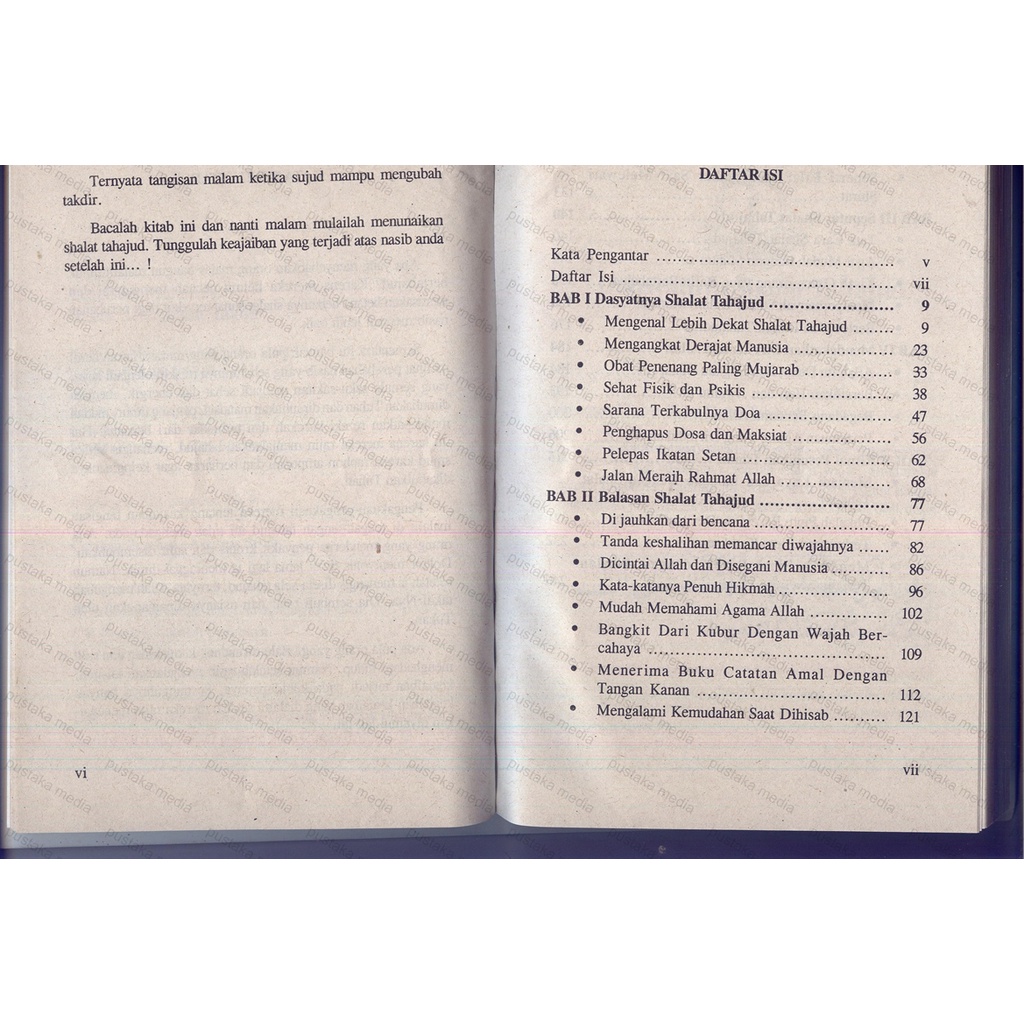 Ternyata tangisan malam ketika sujud mampu mengubah
takdir.
Bacalah kitab ini dan nanti malam mulailah menunaikan
shalat tahajud. Tunggulah keajaiban yang terjadi atas nasib anda
setelah ini... !
vi
DAFTAR ISI
Kata Pengantar ............................................... v
Daftar Isi ....................................................... vii
BAB I Dasyatnya Shalat Tahajud ........................... 9
• Mengenal Lebih Dekat Shalat Tahajud ........ 9
• Mengangkat Derajat Manusia .................... 23
• Obat Penenang Paling Mujarab .................. 33
• Sehat Fisik dan Psikis ............................ 38
• Sarana Terkabulnya Doa ......................... 47
• Penghapus Dosa dan Maksiat .................... 56
• Pelepas Ikatan Setan .............................. 62
• Jalan Meraih Rahmat Allah ...................... 68
BAB II Balasan Shalat Tahajud ............................ 77
• Di jauhkan dari bencana ........................... 77
• Tanda keshalihan memancar diwajahnya ...... 82
• Dicintai Allah dan Disegani Manusia ........... 86
• Kata-katanya Penuh Hikmah ...................... 96
• Mudah Memahami Agama Allah ................ 102
• Bangkit Dari Kubur Dengan Wajah Ber-
cahaya ................................................ 109
• Menerima Buku Catatan Amal Dengan
Tangan Kanan ...................................... 112
• Mengalami Kemudahan Saat Dihisab .......... 121
vii
pustaka media